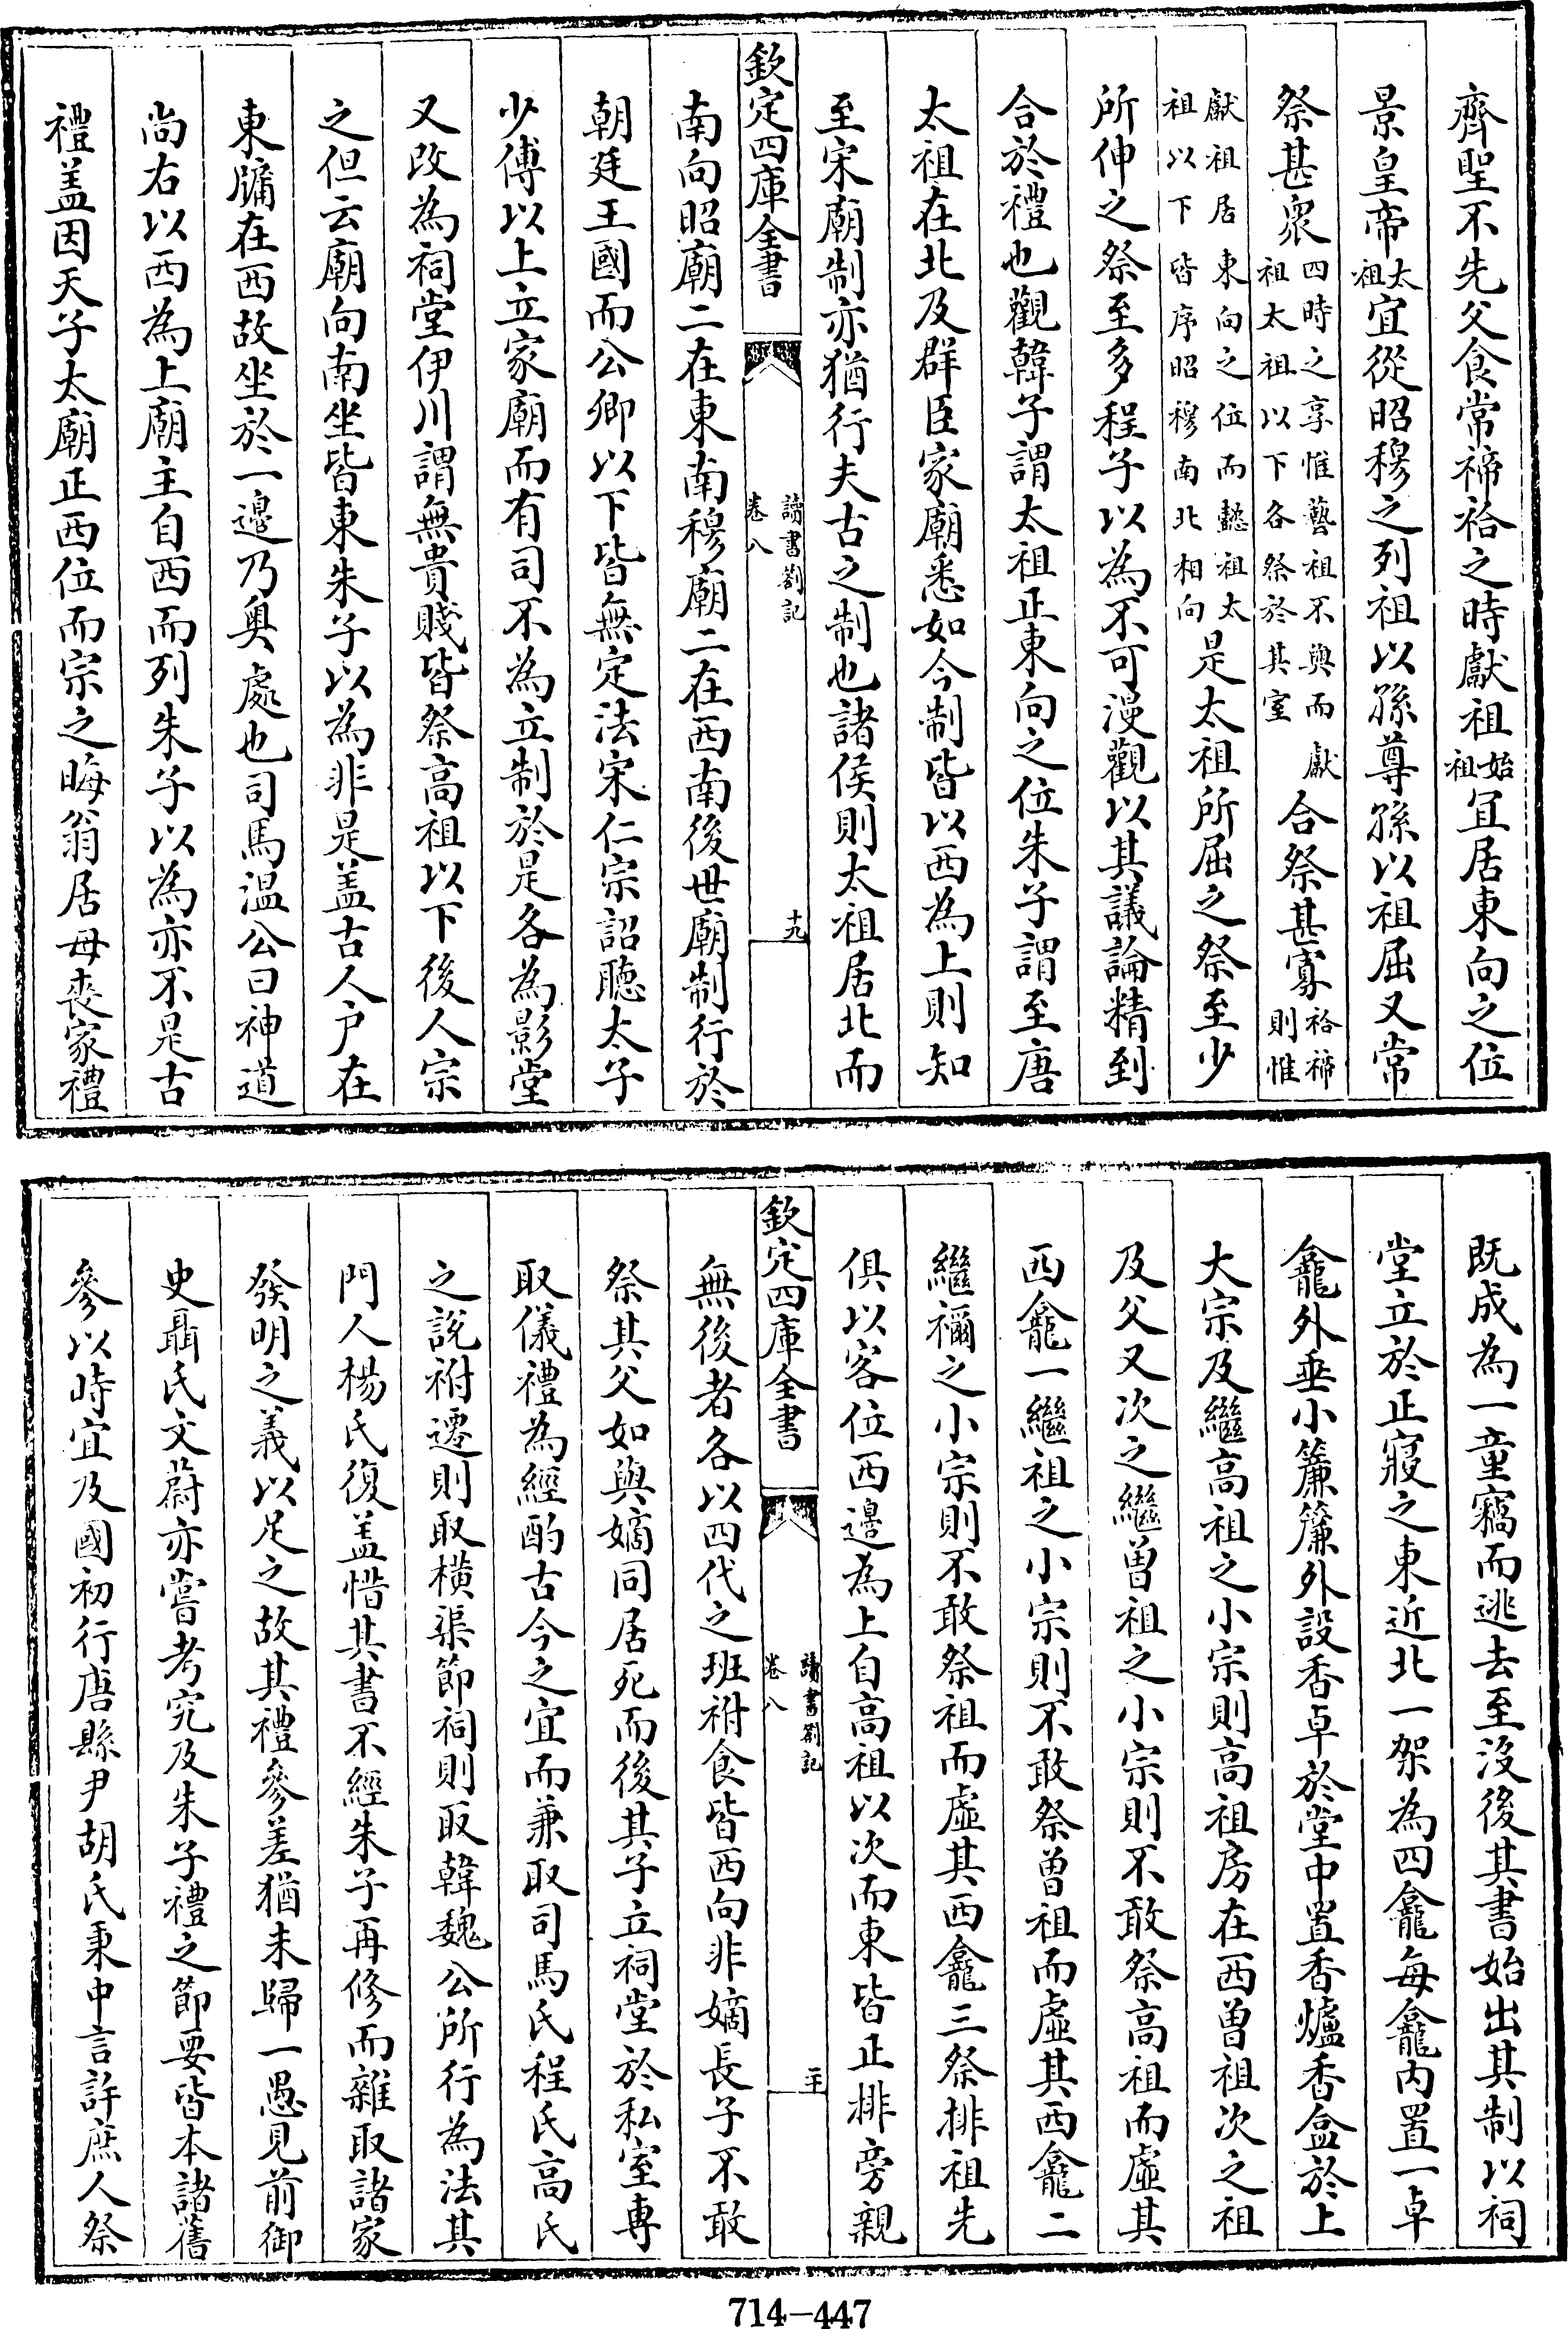 齊聖不先父食常禘祫之時獻祖始祖宜居東向之位
景皇帝太祖宜從昭穆之列祖以孫尊孫以祖屈又常
祭甚衆四時之享惟藝祖不與而獻祖太祖以下各祭於其室合祭甚寡祫禘則惟
獻祖居東向之位而懿祖太祖以下皆序昭穆南北相向是太祖所屈之祭至少
所伸之祭至多程子以為不可漫觀以其議論精到
合於禮也觀韓子謂太祖正東向之位朱子謂至唐
太祖在北及群臣家廟悉如今制皆以西為上則知
至宋廟制亦猶行夫古之制也諸侯則太祖居北而
欽定四庫全書
讀書劄記
卷八
十九
南向昭廟二在東南穆廟二在西南後世廟制行於
朝廷王國而公卿以下皆無定法宋仁宗詔聽太子
少傅以上立家廟而有司不為立制於是各為影堂
又改為祠堂伊川謂無貴賤皆祭高祖以下後人宗
之但云廟向南坐皆東朱子以為非是盖古人户在
東牖在西故坐於一邊乃奥處也司馬温公曰神道
尚右以西為上廟主自西而列朱子以為亦不是古
禮盖因天子太廟正西位而宗之晦翁居母喪家禮
既成為一童竊而逃去至沒後其書始出其制以祠
堂立於正寢之東近北一架為四龕每龕内置一卓
龕外垂小簾簾外設香卓於堂中置香爐香盒於上
大宗及繼高祖之小宗則高祖房在西曽祖次之祖
及父又次之繼曽祖之小宗則不敢祭高祖而虚其
西龕一繼祖之小宗則不敢祭曽祖而虚其西龕二
繼禰之小宗則不敢祭祖而虚其西龕三祭排祖先
俱以客位西邊為上自高祖以次而東皆正排旁親
欽定四庫全書
讀書劄記
卷八
二十
無後者各以四代之班祔食皆西向非嫡長子不敢
祭其父如與嫡同居死而後其子立祠堂於私室專
取儀禮為經酌古今之宜而兼取司馬氏程氏高氏
之說祔遷則取横渠節祠則取韓魏公所行為法其
門人楊氏復盖惜其書不經朱子再修而雜取諸家
發明之義以足之故其禮參差猶未歸一愚見前御
史聶氏文蔚亦嘗考究及朱子禮之節要皆本諸舊
參以時宜及國初行唐縣尹胡氏秉中言許庶人祭
714-447